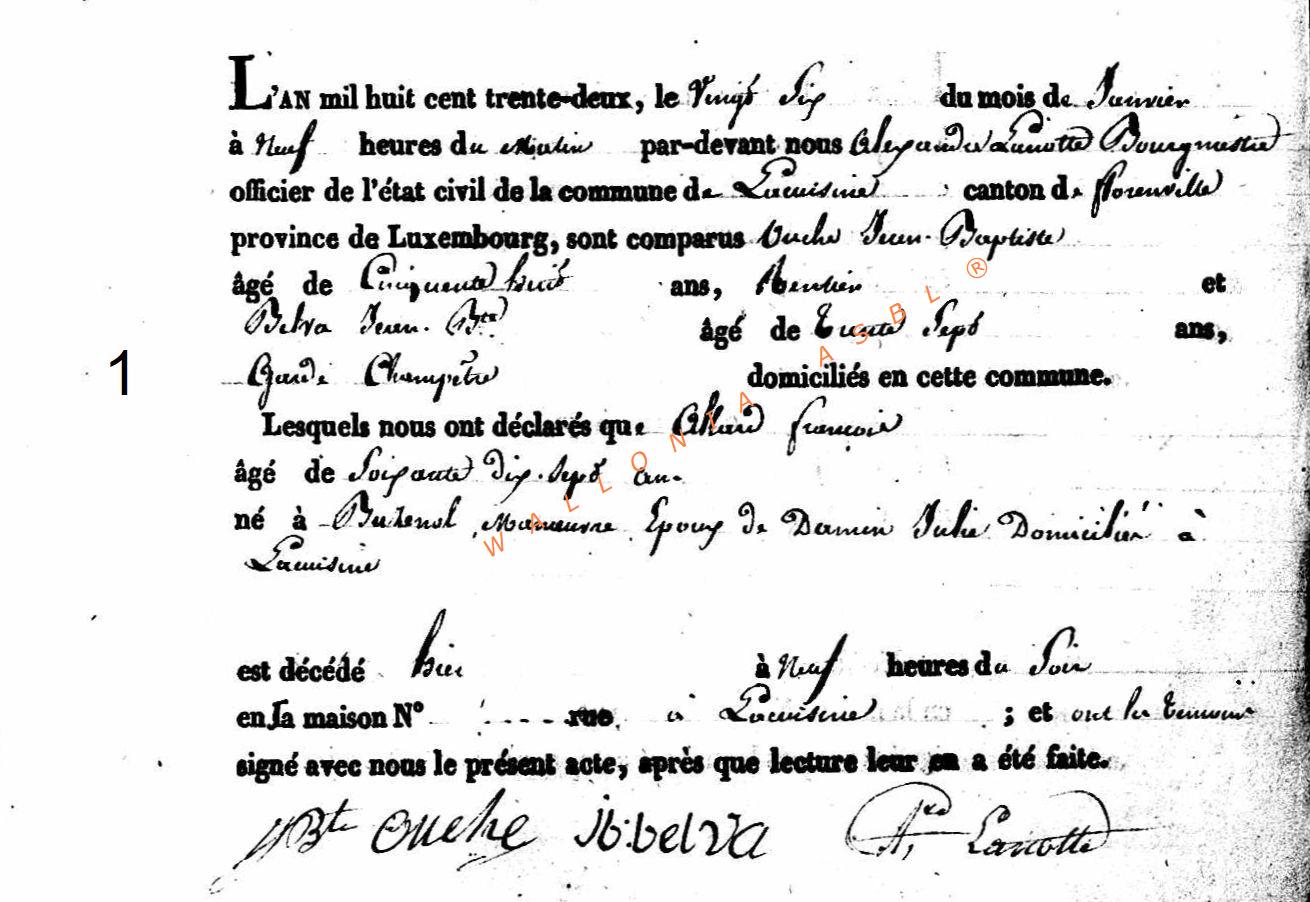 L'AN mil huit cent trente-deux, le Vingt Six du mois de Janvier
à Neuf heures du Matin par-devant nous Alexandre Lanotte Bourgmestre
officier de l'état civil de la commune de Lacuisine canton de fflorenville
province de Luxembourg, sont comparus Ouche Jean-Baptiste
âgé de Cinquante huit ans, Rentier et
Belva Jean-Bte âgé de Trente Sept ans,
Garde Champêtre domiciliés en cette commune.
1
Lesquels nous ont déclarés que françois
âgé de Soixante dix-Sept an.
né à Buzenol Manœuvre Epoux de Damin Julie Domicilié à
Lacuisine
est décédé hier à Neuf heures du Soir
en la maison N° rue à Lacuisine ; et ont les Temoins
signé avec nous le présent acte, après que lecture leur en a été faite.
JBte Ouche Jb:belva Axd Lanotte
WALLONIA ASBL ®